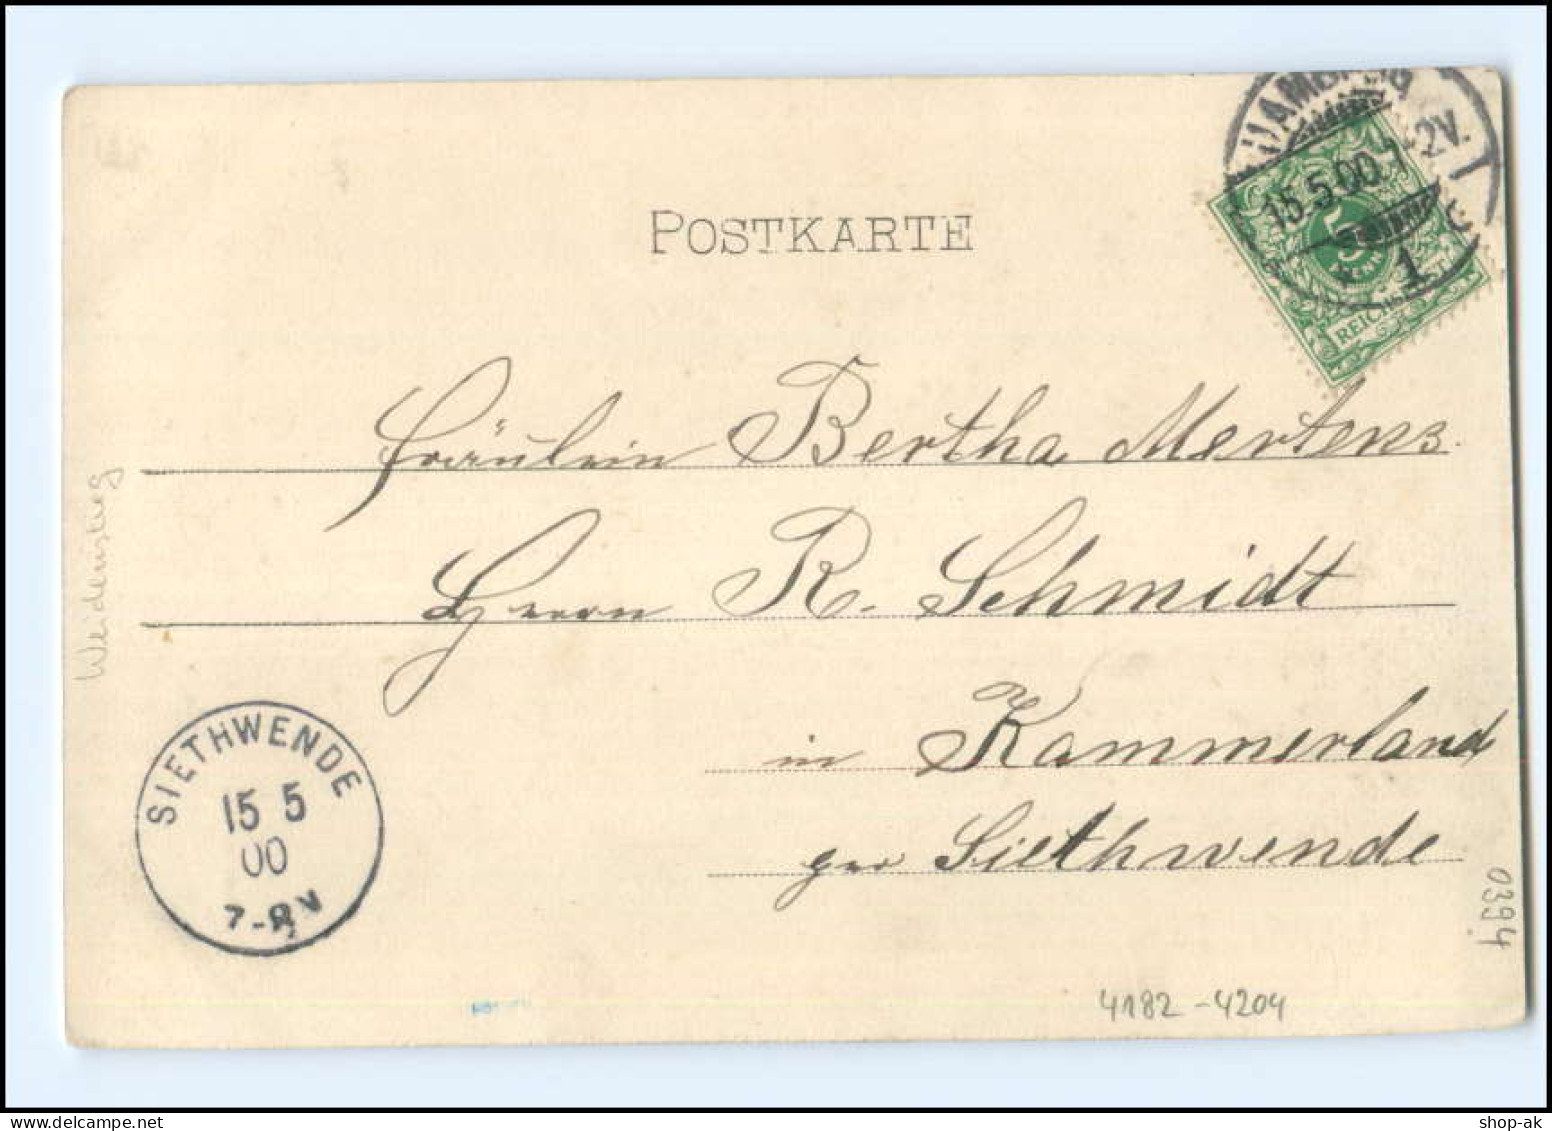 HAMBURG
15.5.00. 1-2V.
1
5
REICHS
POSTKARTE
Fräulein Bertha Mertens.
Herrn R. Schmidt
in Kammerland
per Siethwende
SIETHWENDE
15 5
00
7-8V
Weidenstieg
0394
4182-4204
shop-ak